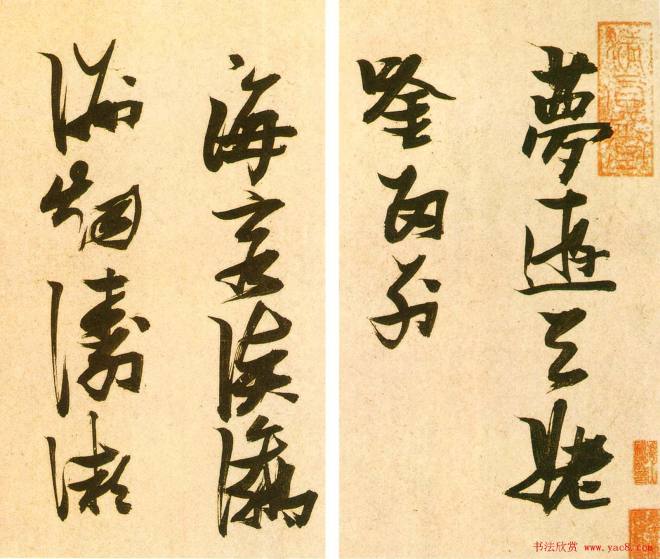 夢遊天姥
唫留别
海客談瀛
洲烟濤微
书法欣赏 www.yac8.com